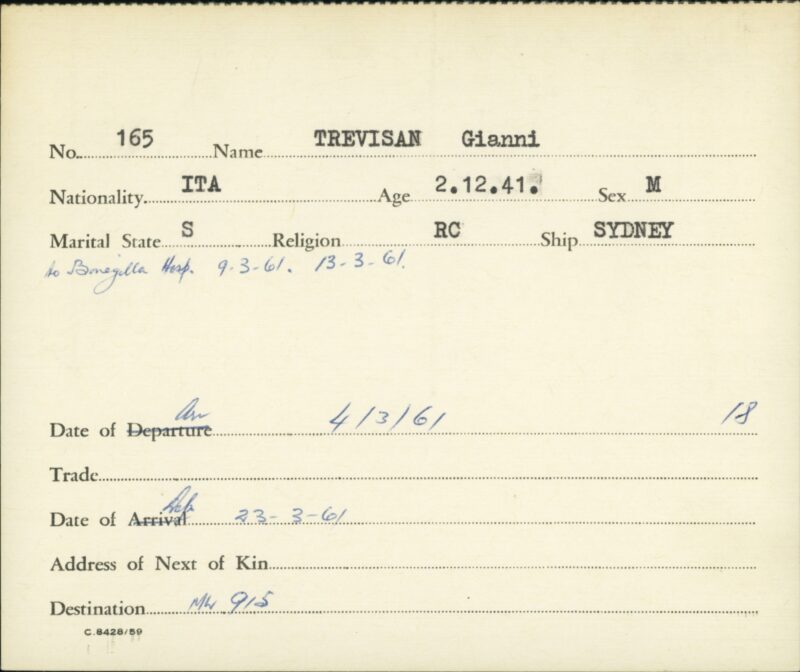 No. 165 Name TREVISAN Gianni
Nationality. ITA Age 2.12.41. Sex M
Marital State S Religion RC Ship SYDNEY
to Bonegilla Hosp. 9-3-61. 13-3-61.
Arr
Date of Departure 4/3/61 18
Trade
Dep
Date of Arrival 23-3-61
Address of Next of Kin
Destination 915
C.8428/59